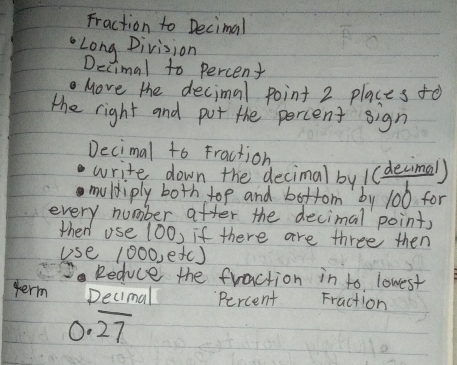 Fraction to Decimal
• Long Division
Decimal to Percent
• Move the decimal point 2 places to
the right and put the percent sign
Decimal to Fraction
• write down the decimal by 1 (decimal/1)
• multiply both top and bottom by 100 for
every number after the decimal point,
then use 100, if there are three then
use 1000, etc)
• Reduce the fraction in to lowest
term Decimal Percent Fraction
0.27